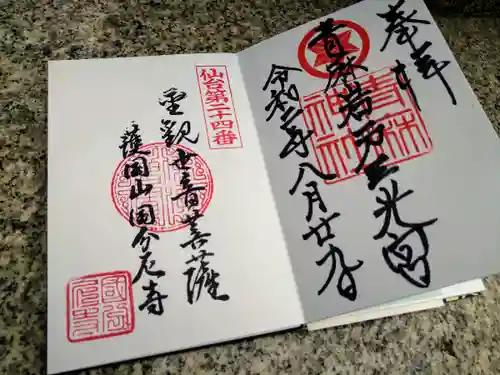 奉拝
青麻岩戸三光宮
令和二年八月廿九日
青麻神社
仙台第二十四番
聖観世音菩薩
護国山国分尼寺
国分尼寺